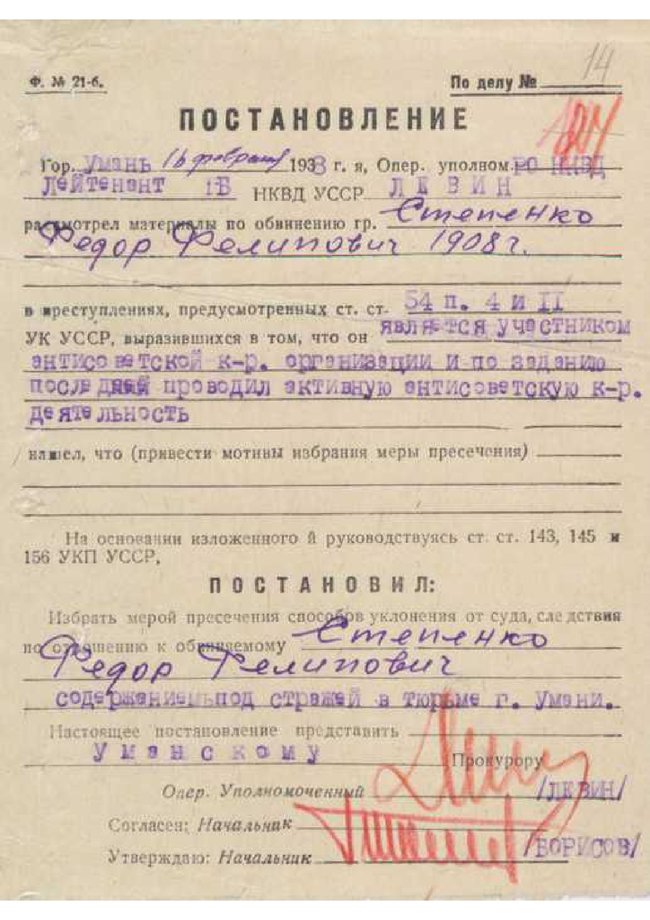 14
Ф. № 21-б. По делу №
204
ПОСТАНОВЛЕНИЕ
Гор. Умань 16 февраля 1938 г. я, Опер. уполном. РО НКВД
Лейтенант ГБ НКВД УССР ЛЕВИН
рассмотрел материалы по обвинению гр. Степенко
Федор Фелипович 1908 г.
в преступлениях, предусмотренных ст. ст. 54 п. 4 и II
УК УССР, выразившихся в том, что он является участником
антисоветской к-р. организации и по заданию
последней проводил активную антисоветскую к-р.
деятельность
нашел, что (привести мотивы избрания меры пресечения)
На основании изложенного й руководствуясь ст. ст. 143, 145 и
156 УКП УССР,
ПОСТАНОВИЛ:
Избрать мерой пресечения способов уклонения от суда, следствия
по отношению к обвиняемому Степенко
Федор Фелипович
содержанием под стражей в тюрьме г. Умани.
Настоящее постановление представить
Уманскому Прокурору
Опер. Уполномоченный /ЛЕВИН/
Согласен: Начальник
Утверждаю: Начальник /БОРИСОВ/